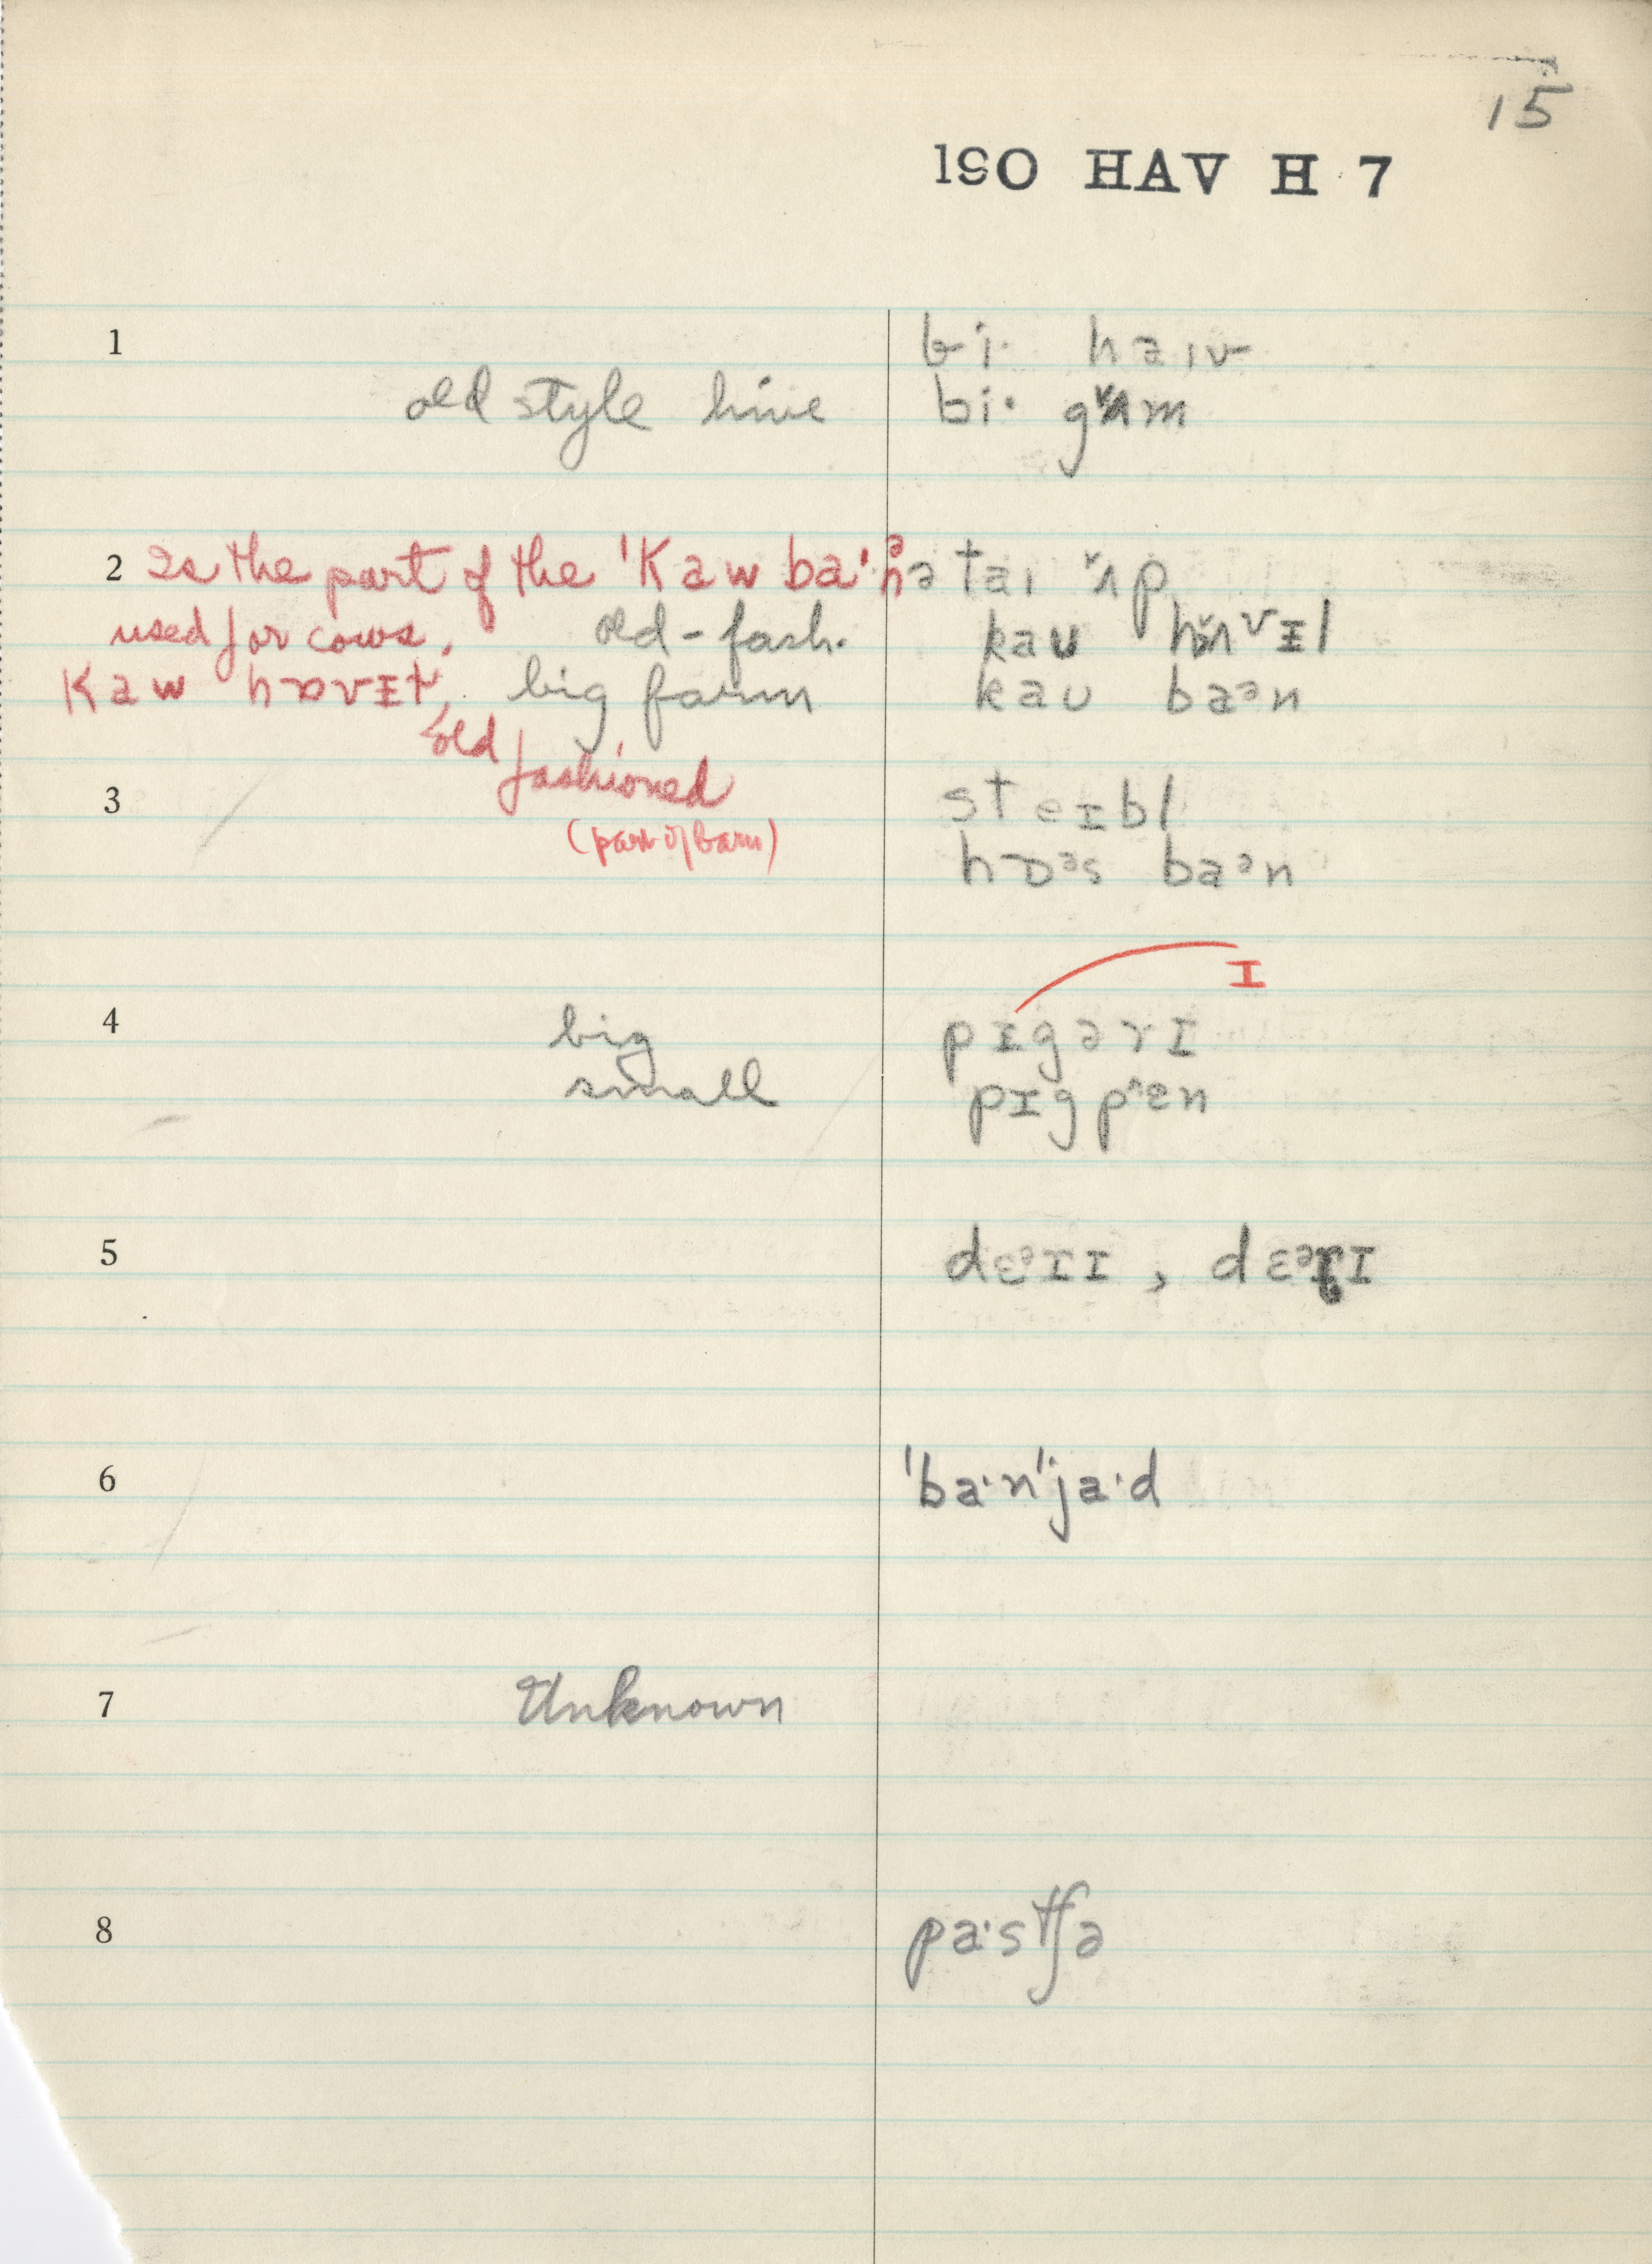 15
190 HAV H 7
1 bi· haɪv
old style hive bi· gʌm
2 Is the part of the 'Kaw ba·ᵊn ə taɪ ʌp
used for cows. old-fash. kaʊ hʌvɪl
Kaw hɒvɪt, big farm kaʊ baᵊn
old
fashioned
3 steɪbl
(part of barn) hɒᵊs baᵊn
I
4 big pɪgərɪ
small pɪgpˆɛn
5 dɛᵊrɪ , dɛᵊrɪ
6 'ba·n'ja·d
7 Unknown
8 pa·stʃə